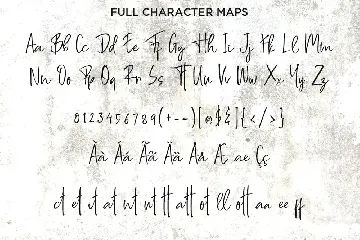 FULL CHARACTER MAPS
Aa Bb Cc Dd Ee Ff Gg Hh Ii Jj Kk Ll Mm
Nn Oo Pp Qq Rr Ss Tt Uu Vv Ww Xx Yy Zz
0123456789(+--)[@$&]{</>}
Àà Áá Ãã Ää Åå Æ ae Çç
ct et it at nt nt tt att ot ll ott aa ee ff